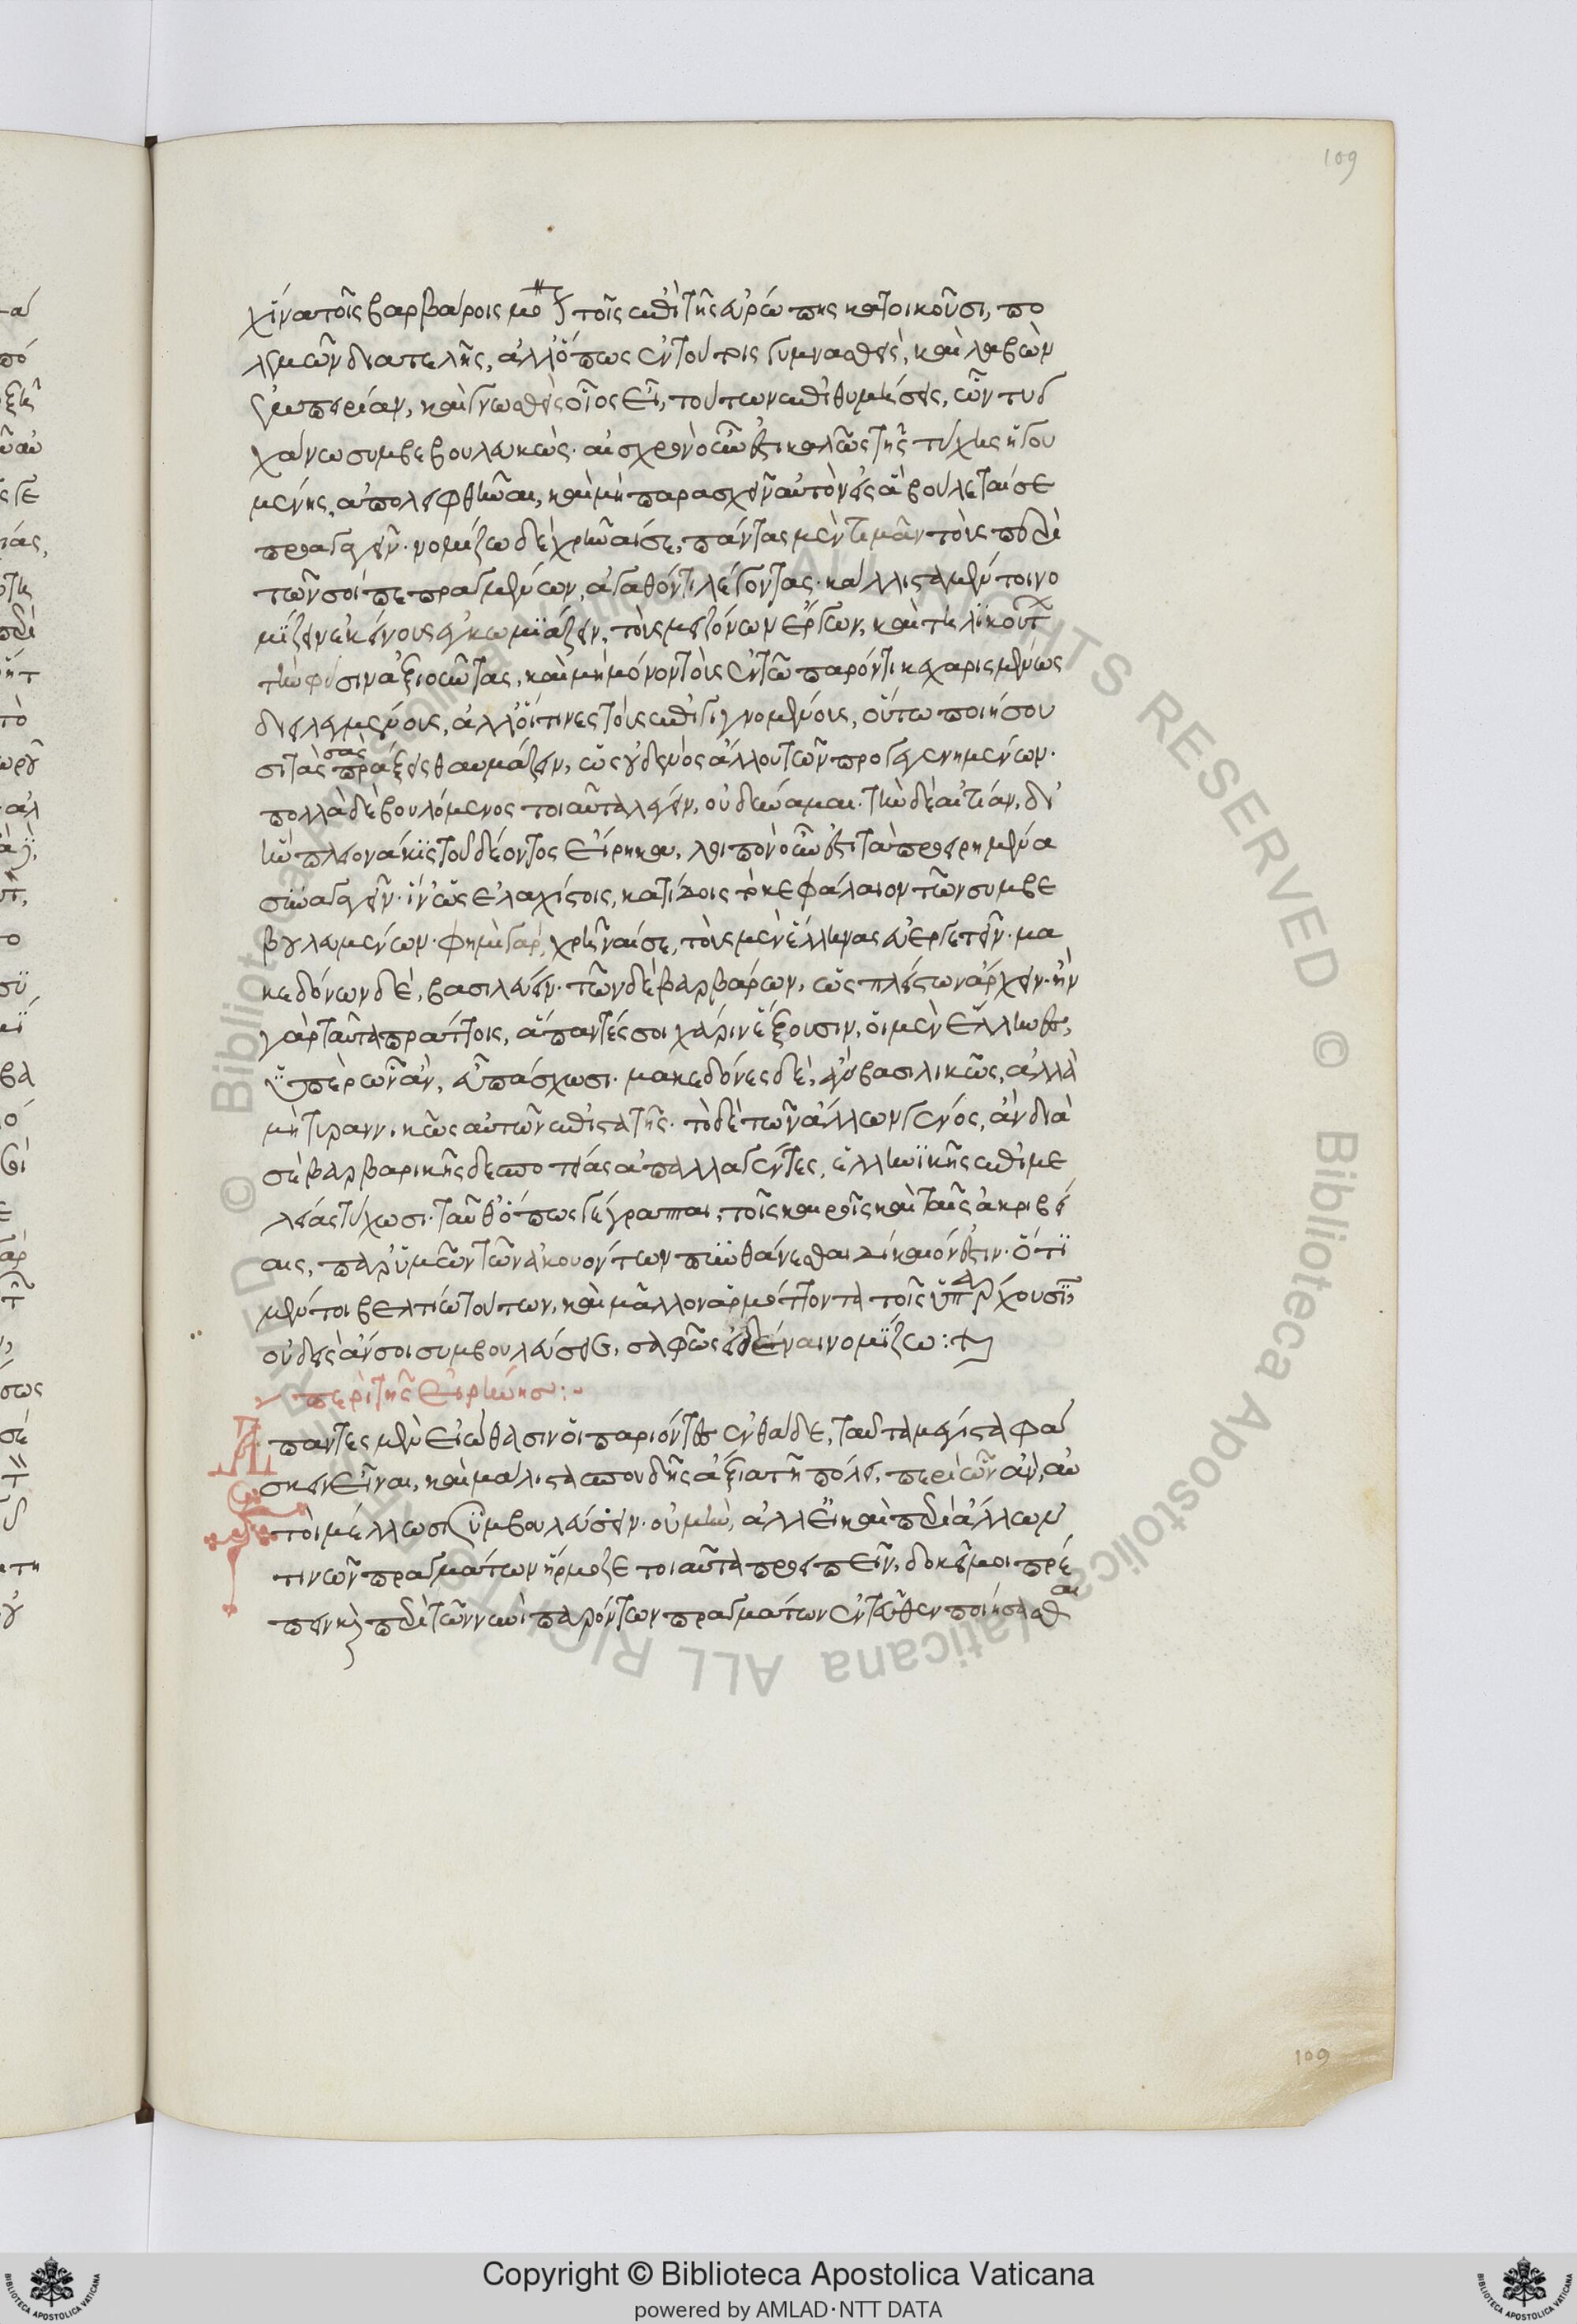 109
χ ἵνα τοῖς βαρβάροις μό τοῖς ἐπὶ τῆς εὐρώπης κατοικοῦσι, πο
λεμῶν διατελῆς, ἀλλ' ὅπως ἐν τούτοις γυμνασθεὶς, καὶ λαβὼν
ἐμπειρίαν, καὶ γνωσθεὶς οἷος εἶ, τούτων ἐπιθυμήσεις, ὧν τυγ
χάνω συμβεβουλευκώς. αἰσχρὸν οὖν ἐστι καλῶς τῆς τύχης ἡγου
μένης, ἀπολειφθῆναι, καὶ μὴ παρασχεῖν αὐτὸν εἰς ἃ βούλεταί σε
προαγαγεῖν. νομίζω δὲ χρῆναί σε, πάντας μὲν τιμᾶν τοὺς περὶ
τῶν σοὶ πεπραγμένων, ἀγαθόν τι λέγοντας. κάλλιστα μέντοι νο
μίζειν ἐκείνους ἐγκωμιάζειν, τοὺς μειζόνων ἔργων, καὶ τηλικούτ
τὴν φύσιν ἀξιοῦντας, καὶ μὴ μόνον τοὺς ἐν τῷ παρόντι κεχαρισμένως
διειλεγμένους, ἀλλ' οἵτινες τοὺς ἐπιγιγνομένους, οὕτω ποιήσου
σι τὰς σὰς πράξεις θαυμάζειν, ὡς οὐδενὸς ἄλλου τῶν προγεγενημένων.
πολλὰ δὲ βουλόμενος τοιαῦτα λέγειν, οὐ δύναμαι. τὴν δὲ αἰτίαν, δι'
ἣν πλεονάκις τοῦ δέοντος εἴρηκα, λοιπὸν οὖν ἐστι τὰ προειρημένα
συναγαγεῖν. ἵν' ὡς ἐλαχίστοις, κατίδοις τὸ κεφάλαιον τῶν συμβε
βουλευμένων. φημὶ γὰρ, χρῆναί σε, τοὺς μὲν ἕλληνας εὐεργετεῖν. μα
κεδόνων δὲ, βασιλεύειν. τῶν δὲ βαρβάρων, ὡς πλείστων ἄρχειν. ἢν
γὰρ ταῦτα πράττοις, ἅπαντές σοι χάριν ἕξουσιν, οἱ μὲν ἕλληνες,
ὑπὲρ ὧν ἂν, εὖ πάσχωσι. μακεδόνες δὲ, ἂν βασιλικῶς, ἀλλὰ
μὴ τυραννικῶς αὐτῶν ἐπιστατῇς. τὸ δὲ τῶν ἄλλων γένος, ἂν διὰ
σὲ βαρβαρικῆς δεσποτείας ἀπαλλαγέντες, ἑλληνικῆς ἐπιμε
λείας τύχωσι. ταῦθ' ὅπως γέγραπται, τοῖς καιροῖς καὶ ταῖς ἀκριβεί
αις, παρ' ὑμῶν τῶν ἀκουόντων πυνθάνεσθαι δίκαιόν ἐστιν. ὅτι
μέντοι βελτίω τούτων, καὶ μᾶλλον ἁρμόττοντα τοῖς ὑπάρχουσιν,
οὐδεὶς ἄν σοι συμβουλεύσει, σαφῶς εἰδέναι νομίζω :
περὶ τῆς εἰρήνης :
Ἅπαντες μὲν εἰώθασιν οἱ παριόντες ἐνθάδε, ταῦτα μέγιστα φά
σκειν εἶναι, καὶ μάλιστα σπουδῆς ἄξια τῇ πόλει, περὶ ὧν ἂν, αὐ
τοὶ μέλλωσι συμβουλεύσειν. οὐ μὴν, ἀλλ' εἰ καὶ περὶ ἄλλων
τινῶν πραγμάτων ἥρμοζε τοιαῦτα προειπεῖν, δοκεῖ μοι πρέ
πειν καὶ περὶ τῶν νυνὶ παρόντων πραγμάτων ἐντεῦθεν ποιήσασθαι
109
© Biblioteca Apostolica Vaticana ALL RIGHTS RESERVED
Copyright © Biblioteca Apostolica Vaticana
powered by AMLAD·NTT DATA
BIBLIOTECA APOSTOLICA VATICANA